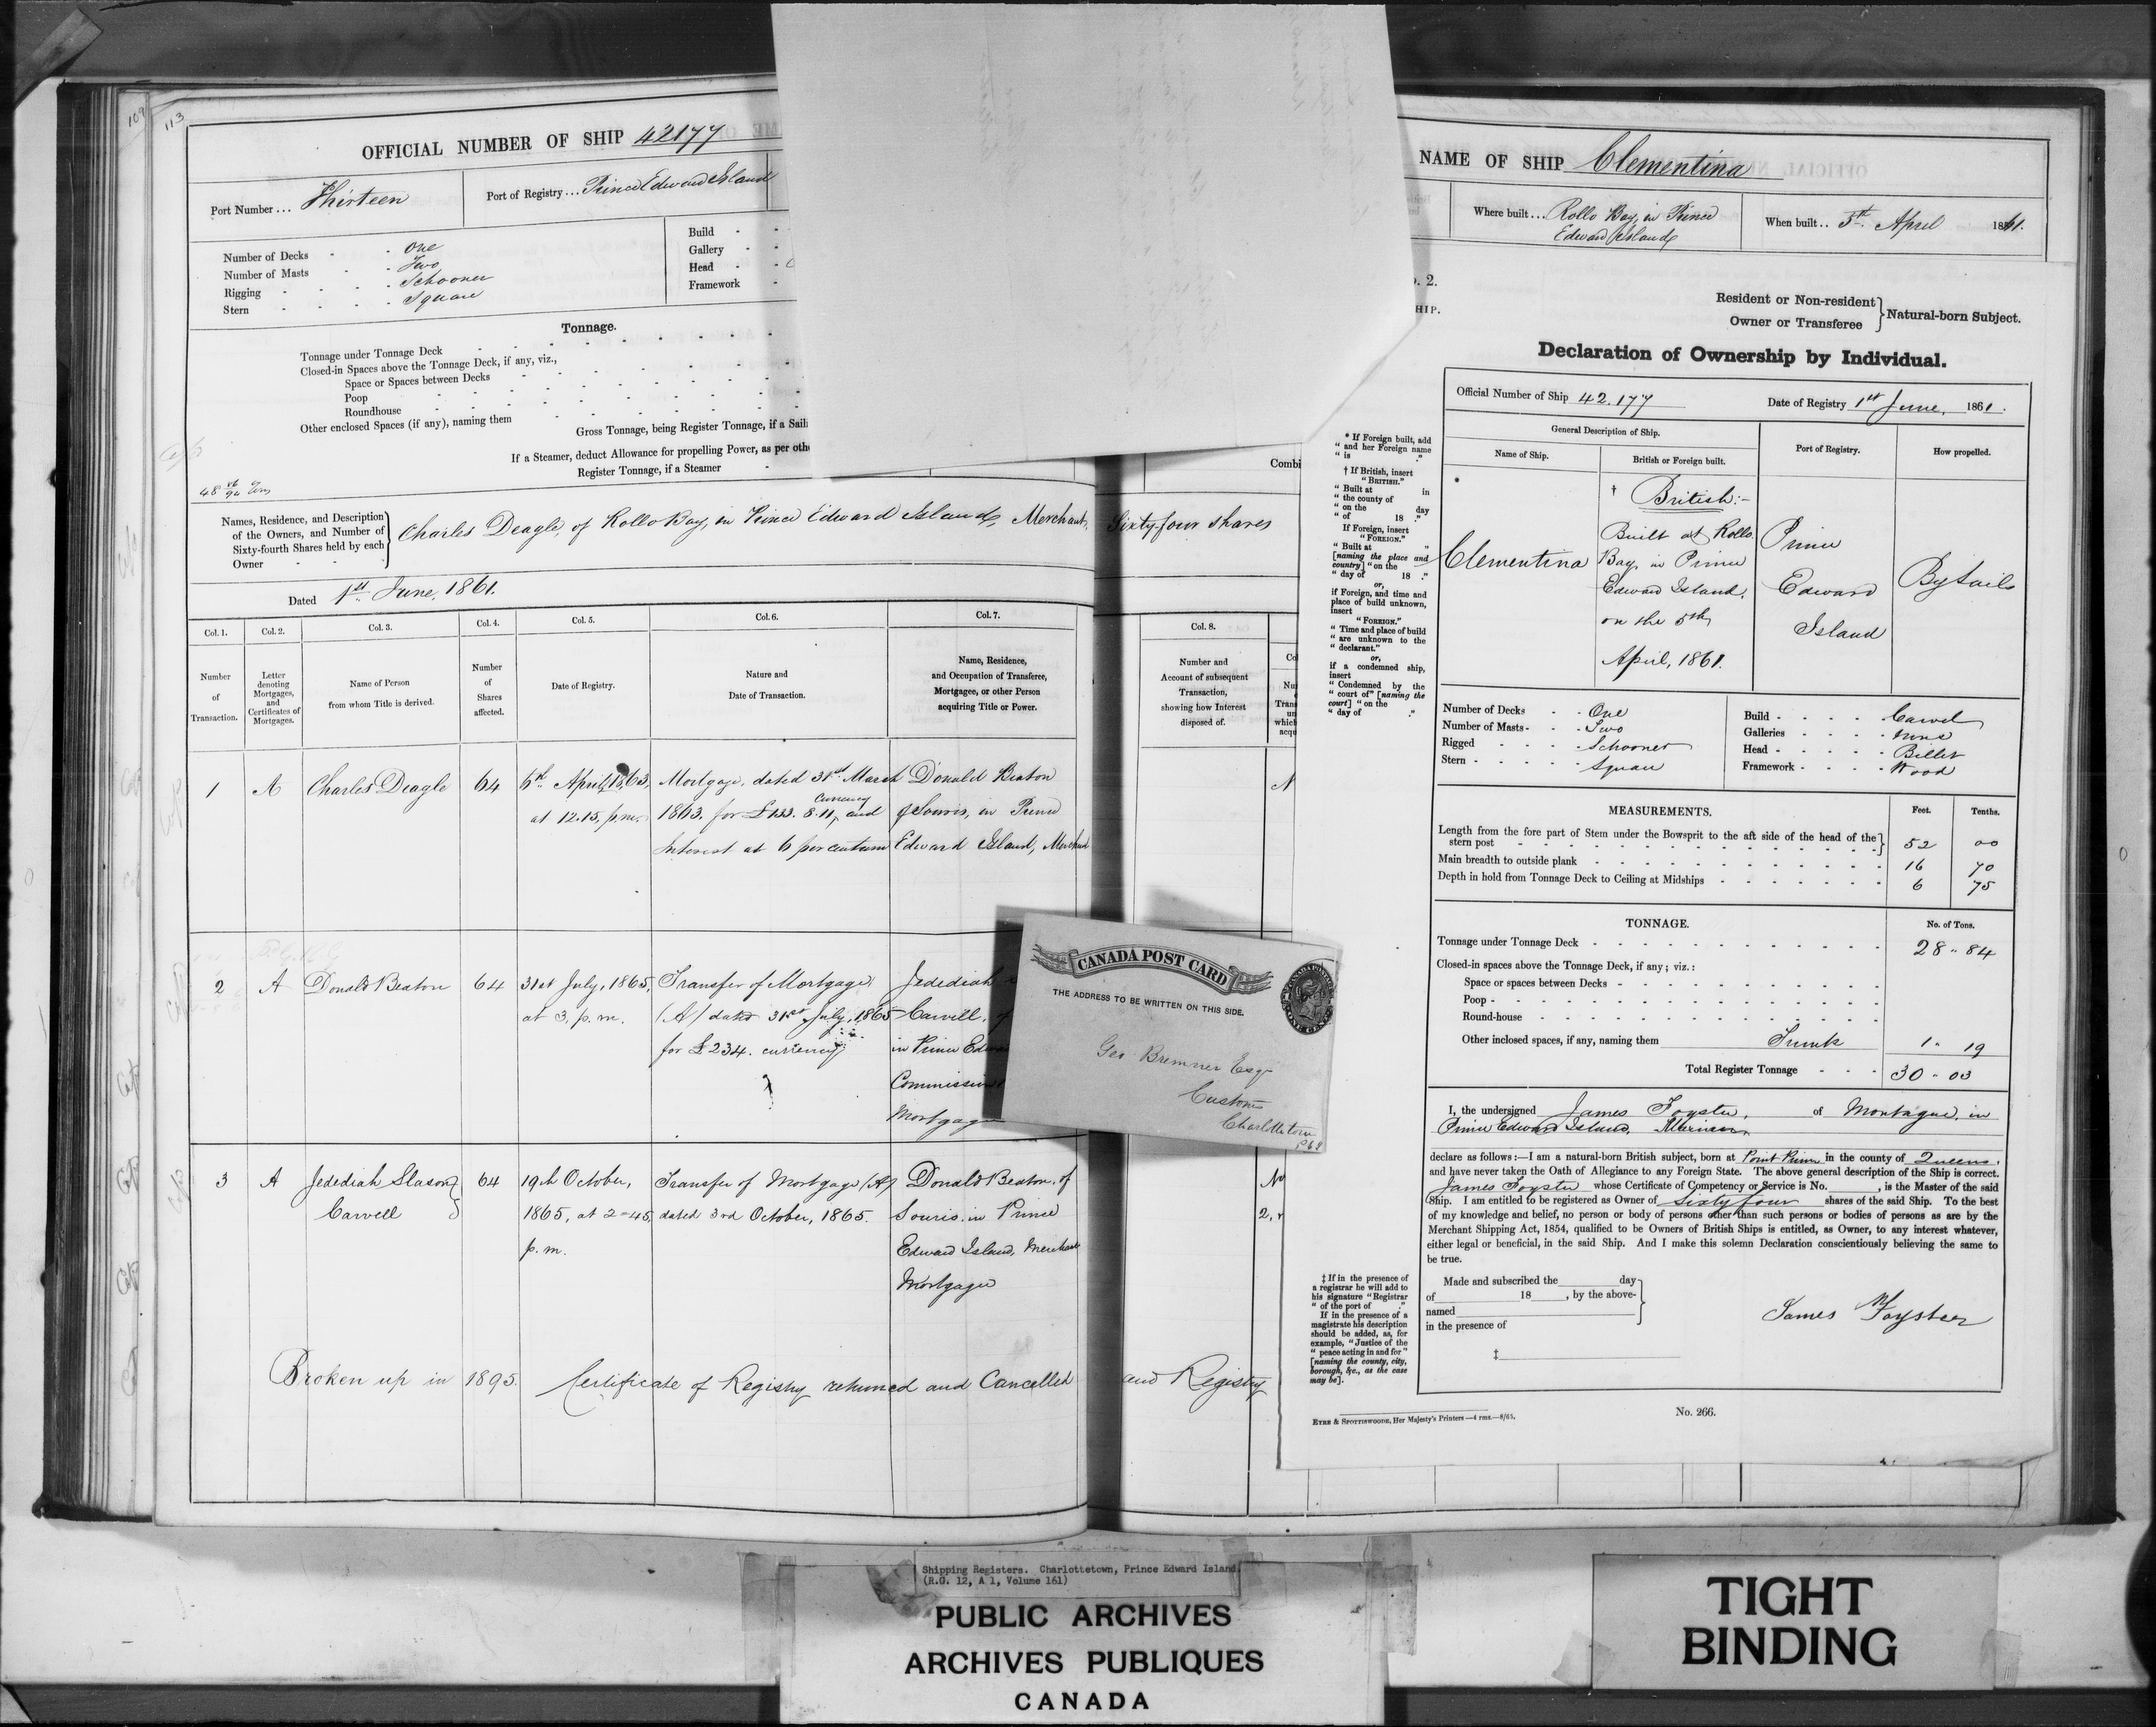 109
113
OFFICIAL NUMBER OF SHIP 42177
Port Number ... Thirteen
Port of Registry ... Prince Edward Island
Number of Decks - - One
Number of Masts - - Two
Rigging - - - - Schooner
Stern - - - - Square
Build - -
Gallery -
Head - -
Framework -
Tonnage.
Tonnage under Tonnage Deck
Closed-in Spaces above the Tonnage Deck, if any, viz.,
Space or Spaces between Decks
Poop
Roundhouse
Other enclosed Spaces (if any), naming them
Gross Tonnage, being Register Tonnage, if a Sail
If a Steamer, deduct Allowance for propelling Power, as per othe
Register Tonnage, if a Steamer
Names, Residence, and Description
of the Owners, and Number of
Sixty-fourth Shares held by each
Owner - -
Charles Deagle, of Rollo Bay, in Prince Edward Island, Merchant, Sixty-four shares
Dated 1st June, 1861.
Col. 1. Col. 2. Col. 3. Col. 4. Col. 5. Col. 6. Col. 7.
Number
of
Transaction.
Letter
denoting
Mortgages,
and
Certificates of
Mortgages.
Name of Person
from whom Title is derived.
Number
of
Shares
affected.
Date of Registry.
Nature and
Date of Transaction.
Name, Residence,
and Occupation of Transferee,
Mortgagee, or other Person
acquiring Title or Power.
1 A Charles Deagle 64
6th April, 1863,
at 12.15, p.m.
Mortgage, dated 31st March
1863. for £133. 8. 11, currency and
Interest at 6 per centum
Donald Beaton
of Souris, in Prince
Edward Island, Merchant
2 A Donald Beaton 64
31st July, 1865,
at 3, p.m.
Transfer of Mortgage
(A) dated 31st July, 1865
for £234. currency
Jedediah
Carvell,
in Prince Edwa
Commission
Mortgage
3 A Jedediah Slason
Carvell
64
19th October,
1865, at 2-45,
p.m.
Transfer of Mortgage (A)
dated 3rd October, 1865.
Donald Beaton, of
Souris, in Prince
Edward Island, Merchant
Mortgagee
Broken up in 1895. Certificate of Registry returned and Cancelled and Registry
Combi
Col. 8.
Number and
Account of subsequent
Transaction,
showing how Interest
disposed of.
CANADA POST CARD
THE ADDRESS TO BE WRITTEN ON THIS SIDE.
CANADA POSTAGE
ONE CENT
Geo Bremner Esqr
Customs
Charlottetown
P E I
NAME OF SHIP Clementina
Where built ... Rollo Bay, in Prince
Edward Island
When built .. 5th April 1861.
. 2.
HIP.
Resident or Non-resident
Owner or Transferee
Natural-born Subject.
Declaration of Ownership by Individual.
Official Number of Ship 42.177
Date of Registry 1st June, 1861.
General Description of Ship.
Name of Ship.
British or Foreign built.
Port of Registry.
How propelled.
Clementina
† British:-
Built at Rollo
Bay, in Prince
Edward Island,
on the 5th
April, 1861.
Prince
Edward
Island
By Sails
* If Foreign built, add
" and her Foreign name
" is ."
† If British, insert
"BRITISH."
" Built at in
" the county of
" on the day
" of 18 ."
If Foreign, insert
"FOREIGN."
" Built at "
[naming the place and
country] " on the
" day of 18 ."
or,
if Foreign, and time and
place of build unknown,
insert
"FOREIGN."
" Time and place of build
" are unknown to the
" declarant."
or,
if a condemned ship,
insert
" Condemned by the
" court of" [naming the
court] " on the
" day of ."
Number of Decks - - One
Number of Masts - - Two
Rigged - - - - Schooner
Stern - - - - Square
Build - - - - Carvel
Galleries - - - - None
Head - - - - Billet
Framework - - - Wood
MEASUREMENTS. Feet. Tenths.
Length from the fore part of Stem under the Bowsprit to the aft side of the head of the
stern post 52 00
Main breadth to outside plank 16 70
Depth in hold from Tonnage Deck to Ceiling at Midships 6 75
TONNAGE. No. of Tons.
Tonnage under Tonnage Deck 28 - 84
Closed-in spaces above the Tonnage Deck, if any; viz.:
Space or spaces between Decks
Poop
Round-house
Other inclosed spaces, if any, naming them Trunk 1. 19
Total Register Tonnage 30 - 03
I, the undersigned James Foyster, of Montague, in
Prince Edward Island, Mariner
declare as follows:—I am a natural-born British subject, born at Point Prim in the county of Queens,
and have never taken the Oath of Allegiance to any Foreign State. The above general description of the Ship is correct.
James Foyster whose Certificate of Competency or Service is No. , is the Master of the said
Ship. I am entitled to be registered as Owner of Sixty four shares of the said Ship. To the best
of my knowledge and belief, no person or body of persons other than such persons or bodies of persons as are by the
Merchant Shipping Act, 1854, qualified to be Owners of British Ships is entitled, as Owner, to any interest whatever,
either legal or beneficial, in the said Ship. And I make this solemn Declaration conscientiously believing the same to
be true.
Made and subscribed the day
of 18 , by the above-
named
in the presence of
‡
James Foyster
‡ If in the presence of
a registrar he will add to
his signature "Registrar
" of the port of ."
If in the presence of a
magistrate his description
should be added, as, for
example, "Justice of the
" peace acting in and for"
[naming the county, city,
borough, &c., as the case
may be].
EYRE & SPOTTISWOODE, Her Majesty's Printers—4 rms.—8/65.
No. 266.
Shipping Registers. Charlottetown, Prince Edward Island.
(R.G. 12, A 1, Volume 161)
PUBLIC ARCHIVES
ARCHIVES PUBLIQUES
CANADA
TIGHT
BINDING